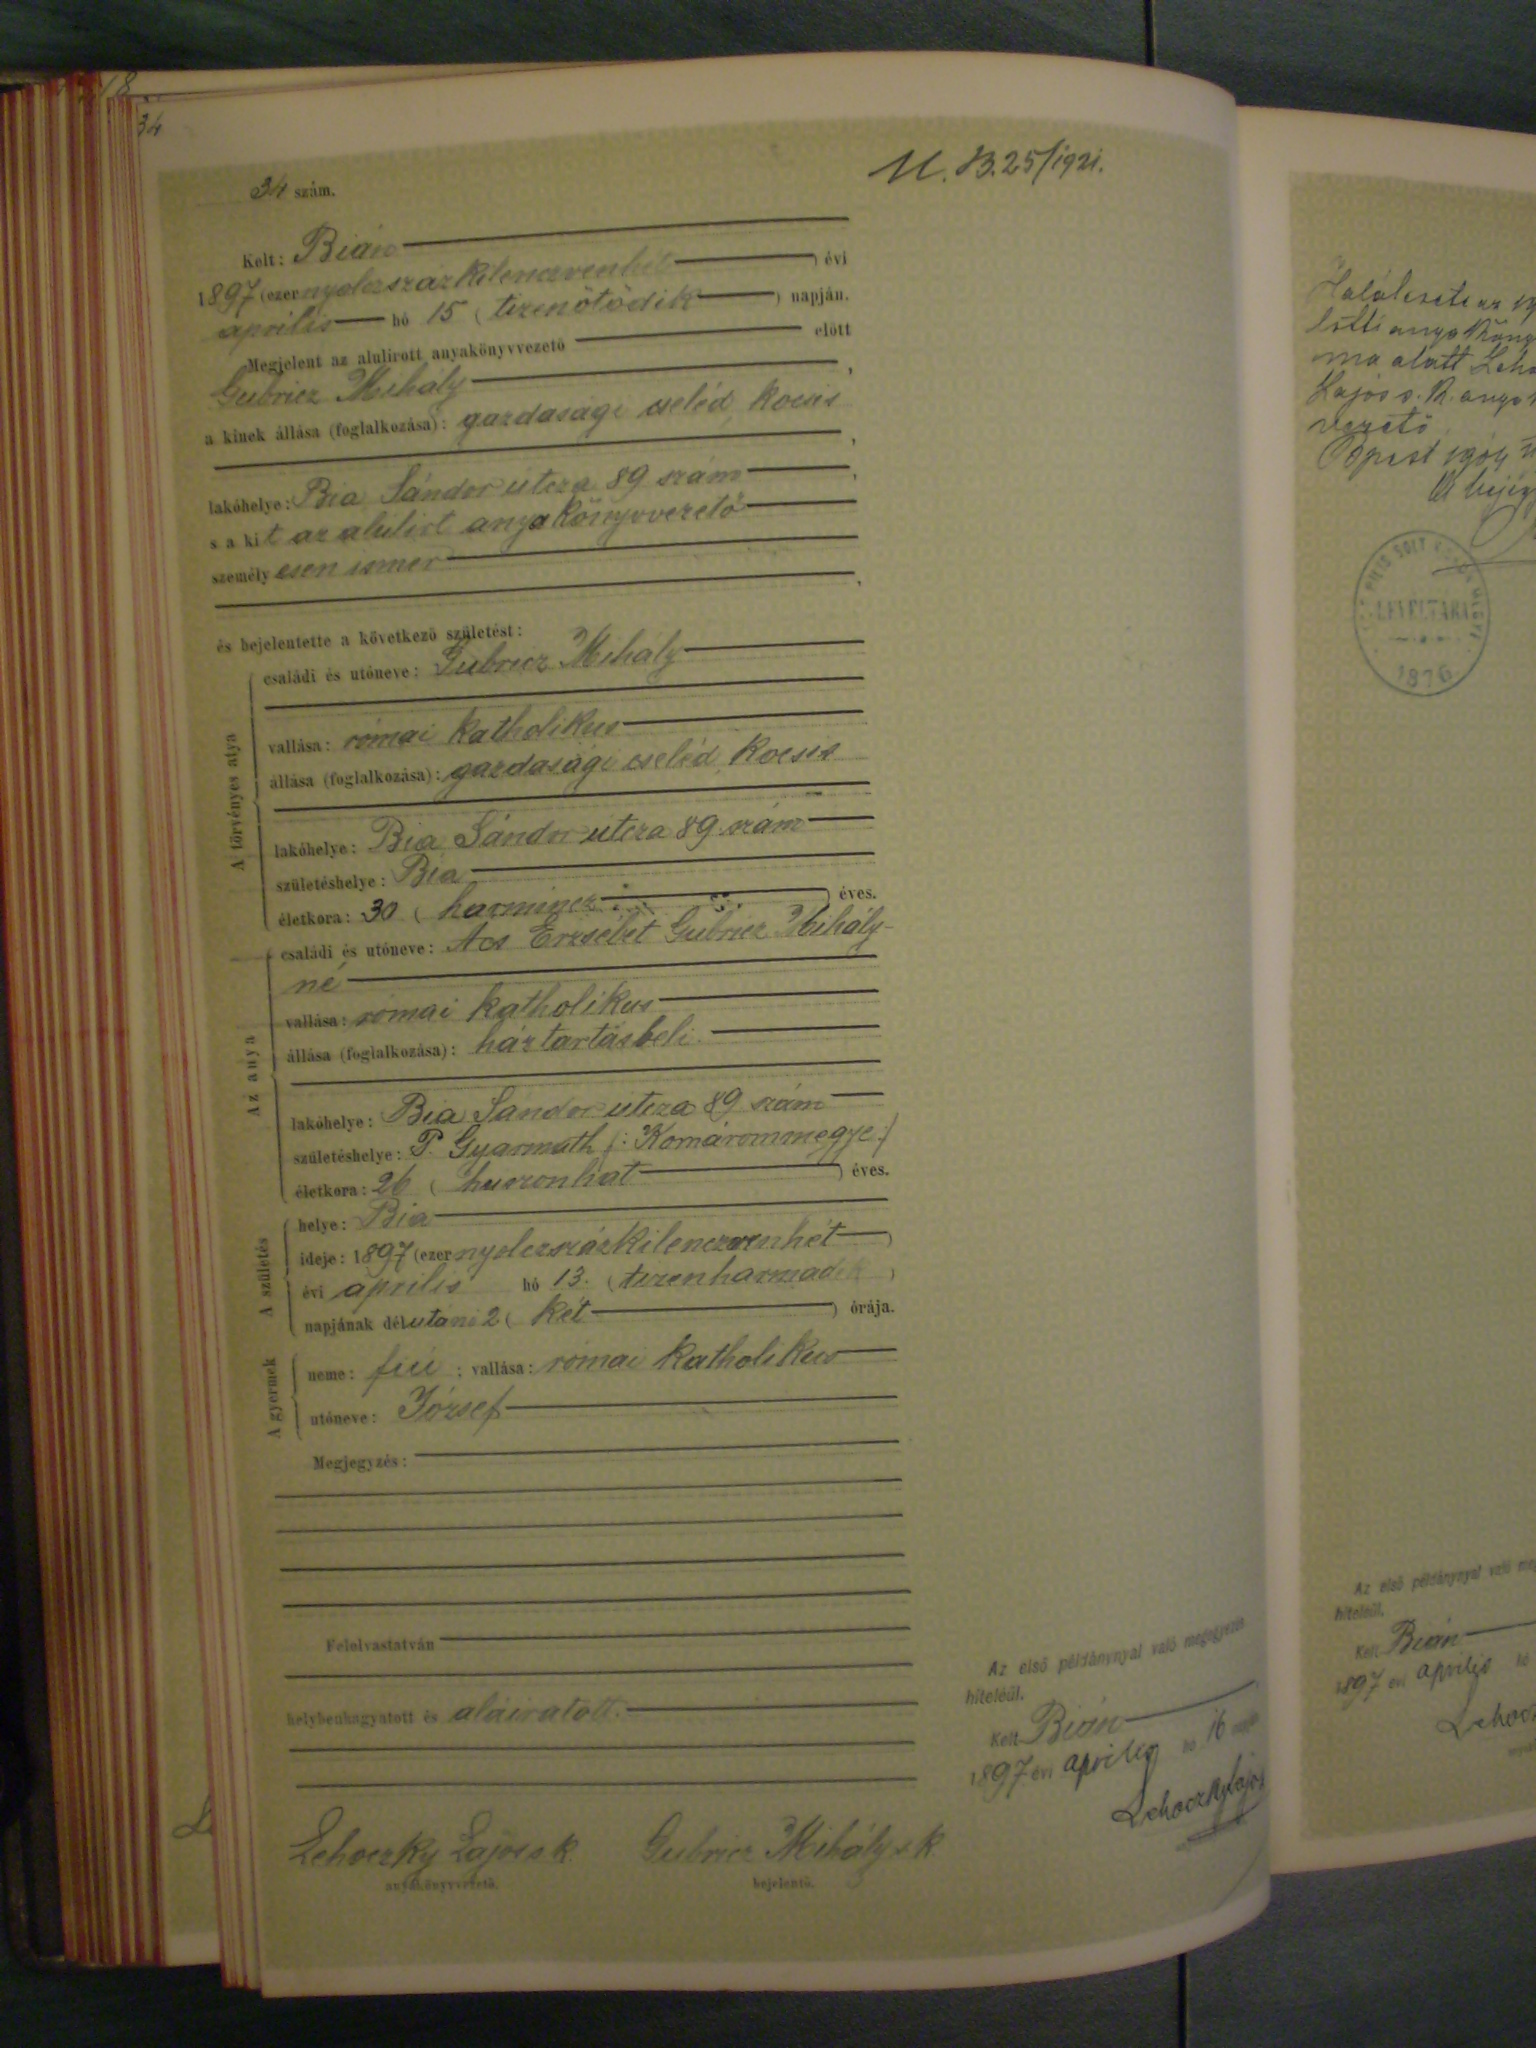 34
34 szám.
U. B. 25/1921.
Kelt: Bián
1897 (ezer nyolczszázkilenczvenhét) évi
április hó 15 (tizenötödik) napján.
Megjelent az alulirott anyakönyvvezető előtt
Gubricz Mihály,
a kinek állása (foglalkozása): gazdasági cseléd kocsis,
lakóhelye: Bia Sándor utcza 89 szám,
s a kit az alulirt anyakönyvvezető
személyesen ismer,
és bejelentette a következő születést:
A törvényes atya
családi és utóneve: Gubricz Mihály
vallása: római katholikus
állása (foglalkozása): gazdasági cseléd kocsis
lakóhelye: Bia Sándor utcza 89 szám
születéshelye: Bia
életkora: 30 (harmincz) éves.
Az anya
családi és utóneve: Ács Erzsébet Gubricz Mihály-
né
vallása: római katholikus
állása (foglalkozása): háztartásbeli
lakóhelye: Bia Sándor utcza 89 szám
születéshelye: P. Gyarmath /: Komárommegye :/
életkora: 26 (huszonhat) éves.
A születés
helye: Bia
ideje: 1897 (ezer nyolczszázkilenczvenhét)
évi április hó 13. (tizenharmadik)
napjának délutáni 2 (két) órája.
A gyermek
neme: fiú; vallása: római katholikus
utóneve: József
Megjegyzés:
Felolvastatván
helybenhagyatott és aláiratott.
Lehoczky Lajos s k.
anyakönyvvezető.
Gubricz Mihály s k
bejelentő.
Az első példánynyal való megegyezés
hiteléül.
Kelt Bián
1897 évi április hó 16 napján
Lehoczky Lajos
Halálesete az
ma alatt
Lajos s. k.
vezető
Bpest
A
LEVÉLTÁRA
1876
Az első példánynyal való
hiteléül.
Kelt Bián
1897 évi április hó